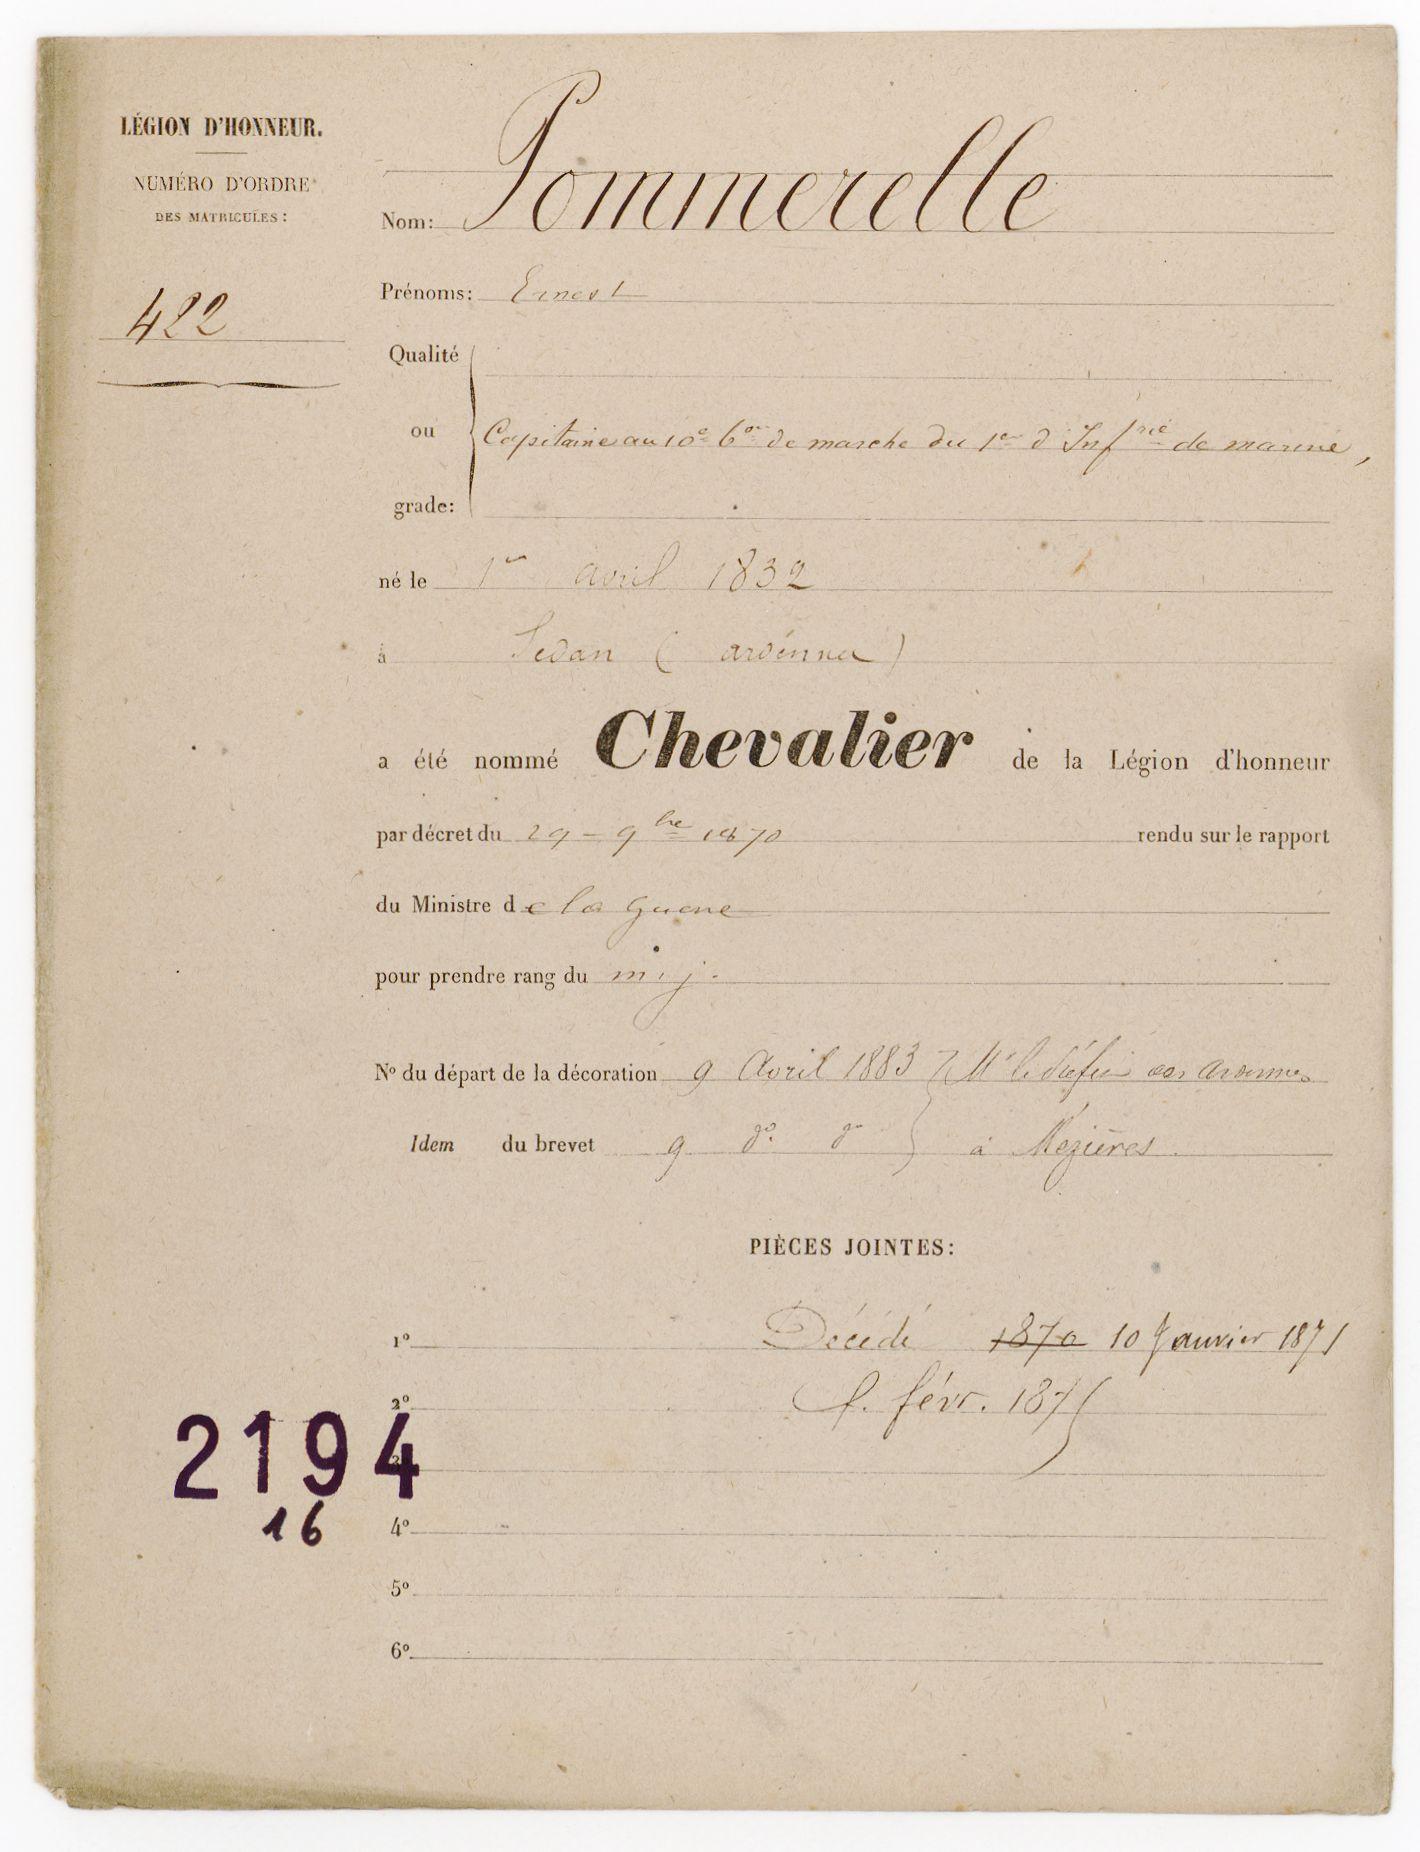 LÉGION D'HONNEUR.
NUMÉRO D'ORDRE
DES MATRICULES:
422
Nom: Pommerelle
Prénoms: Ernest
Qualité
ou
grade:
Capitaine au 10e bon de marche du 1er d'Infrie de marine,
né le 1er avril 1832
à Sedan (ardennes)
a été nommé Chevalier de la Légion d'honneur
par décret du 29 - 9bre 1870 rendu sur le rapport
du Ministre de la guerre
pour prendre rang du m. j.
No du départ de la décoration 9 Avril 1883 } Mr le Préfet des Ardennes
Idem du brevet 9 do do } à Mézières
PIÈCES JOINTES:
1o Décédé 1870 10 Janvier 1871
2o f. févr. 187
3o
2194
16
4o
5o
6o